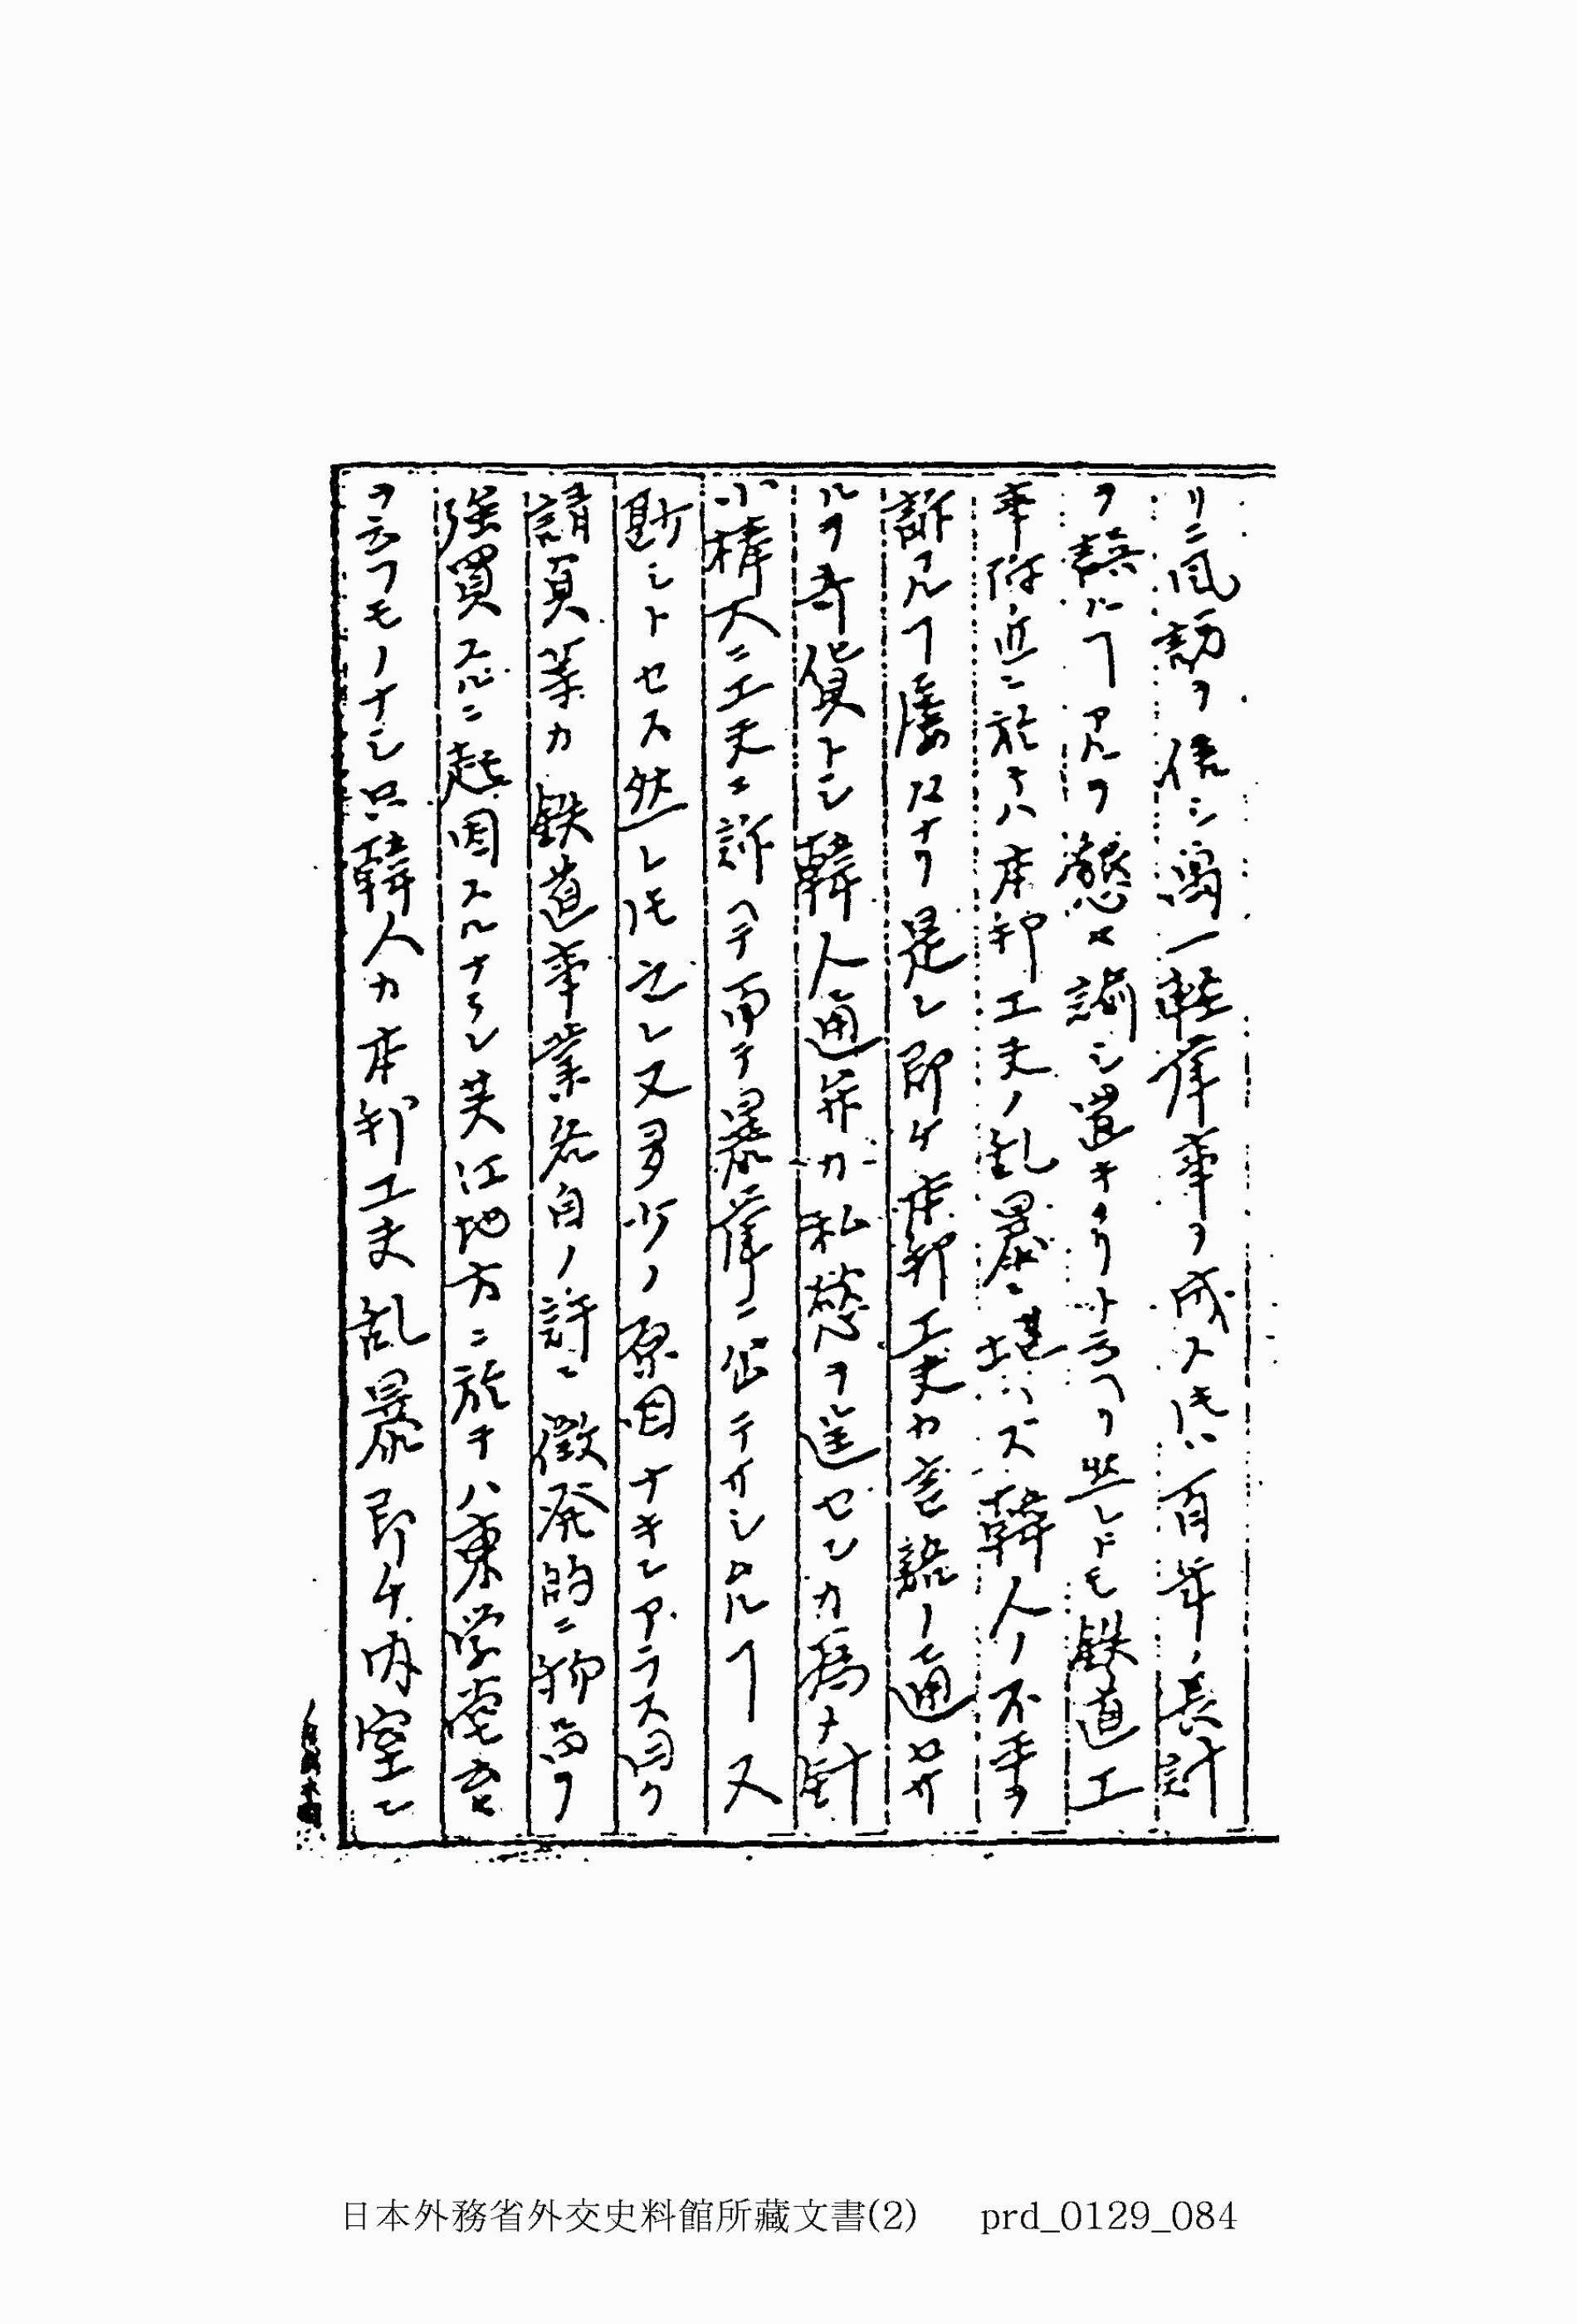 リニ風説ヲ信シ萬一軽挙事ヲ成ストキハ百年ノ長計
ヲ誤ルヿアルヲ懇々諭シ置キタリト云ヘリ然レドモ鉄道工
事附近ニ於テハ本邦工夫ノ乱暴ニ堪ヘズ韓人ノ不平ヲ
訴フルヿ屡々ナリ是レ即チ本邦工夫カ言語ノ通セサ
ルヲ奇貨トシ韓人通弁カ私慾ヲ逞センカ為ナ針
小棒大ニ工夫ニ訴ヘテ而テ暴挙ニ出テタルヿ又
尠シトセス然レトモ之レ又多少ノ原因ナキニアラス曰ク
請負業カ鉄道事業各自ノ許ニ徴発的ニ物品ヲ
強買スルニ起因スルナラン芙江地方ニ於テハ東学党云
ヲ云フモノナシ只韓人カ本邦工夫乱暴即チ内室ニ
日本外務省外交史料館所藏文書(2) prd_0129_084